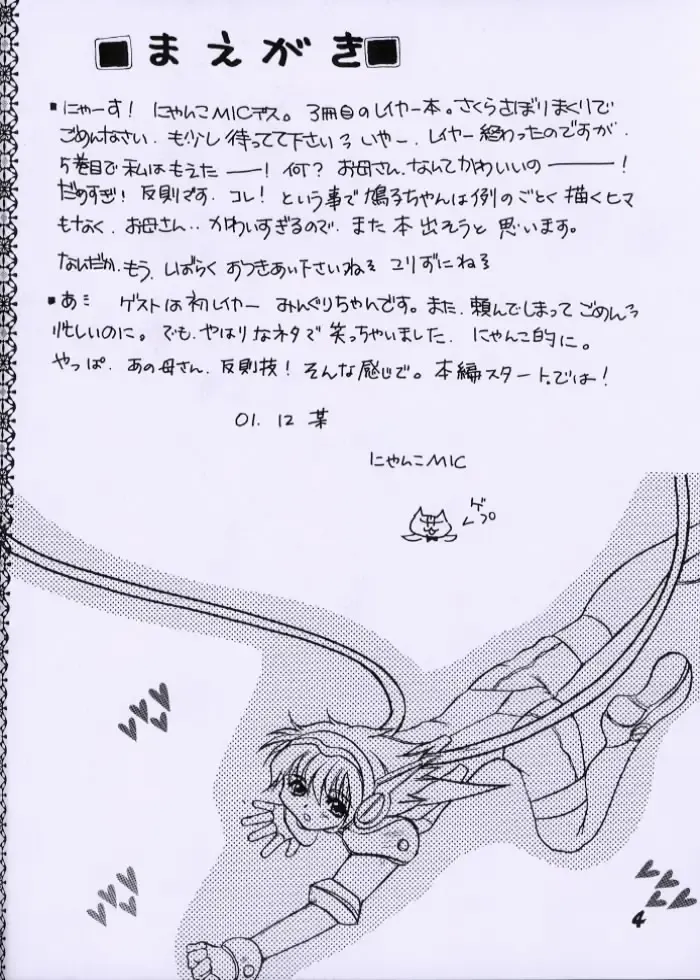 まえがき
▪にゃーす! にゃんこMICデス。3冊目のレイヤー本。さくらさぼりまくりで
ごめんなさい. も少し待ってて下さいろ いやー. レイヤー終わったのですが.
5巻目で私はもえたーー! 何? お母さん. なんてかわいいのーー!
だめすぎ! 反則です. コレ! という事で鳩子ちゃんは例のごとく描くヒマ
もなく. お母さん‥かわいすぎるので. また 本 出そうと 思います。
なんだか. もう. しばらく おつきあい下さいね こりずにね
▪あ ゲストは初レイヤー みんぐりちゃんです。また. 頼んでしまって ごめん
忙しいのに。でも. やはりなネタで 笑っちゃいました. にゃんこ的に。
やっぱ. あの母さん. 反則技! そんな感じで。本編スタート。では!
01. 12 某
にゃんこMIC
ゲプ
4